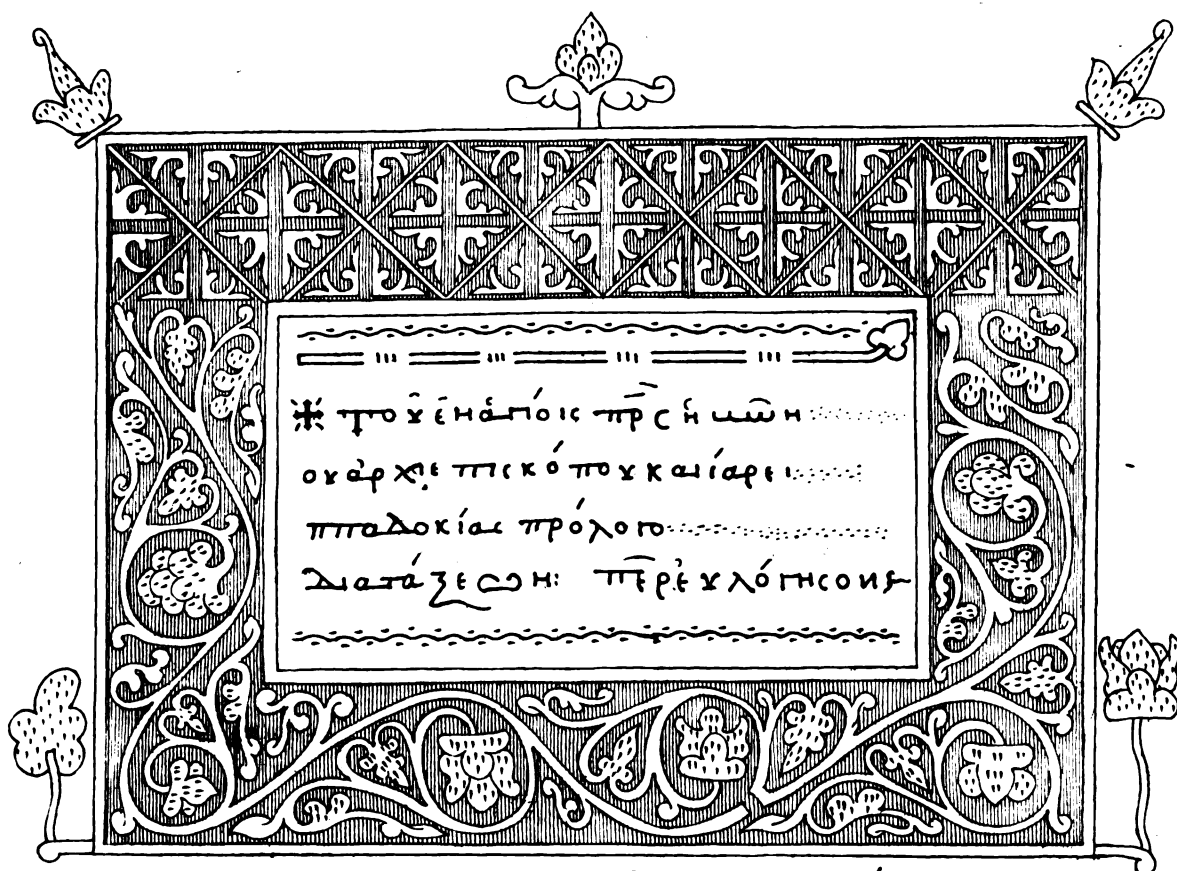 ☩ τοῦ ἐν ἁγίοις πρς ἡμῶν
ου ἀρχιεπισκόπου καισαρεί
ππαδοκίας πρόλογο
διατάξεων: περ εὐλόγησον